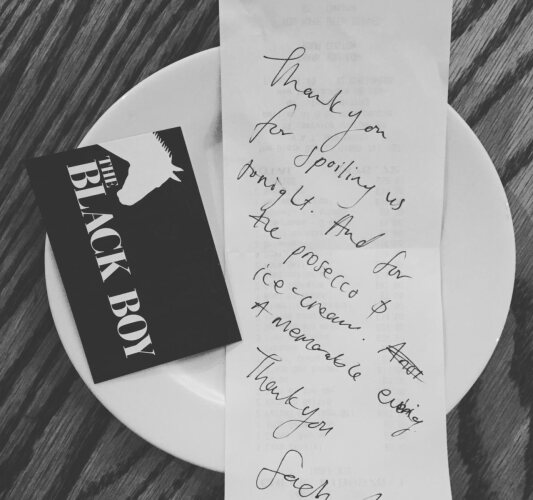 THE
BLACK BOY
Thank you
for spoiling us
tonight. And for
the prosecco &
ice-cream.
A memorable evening.
Thank you